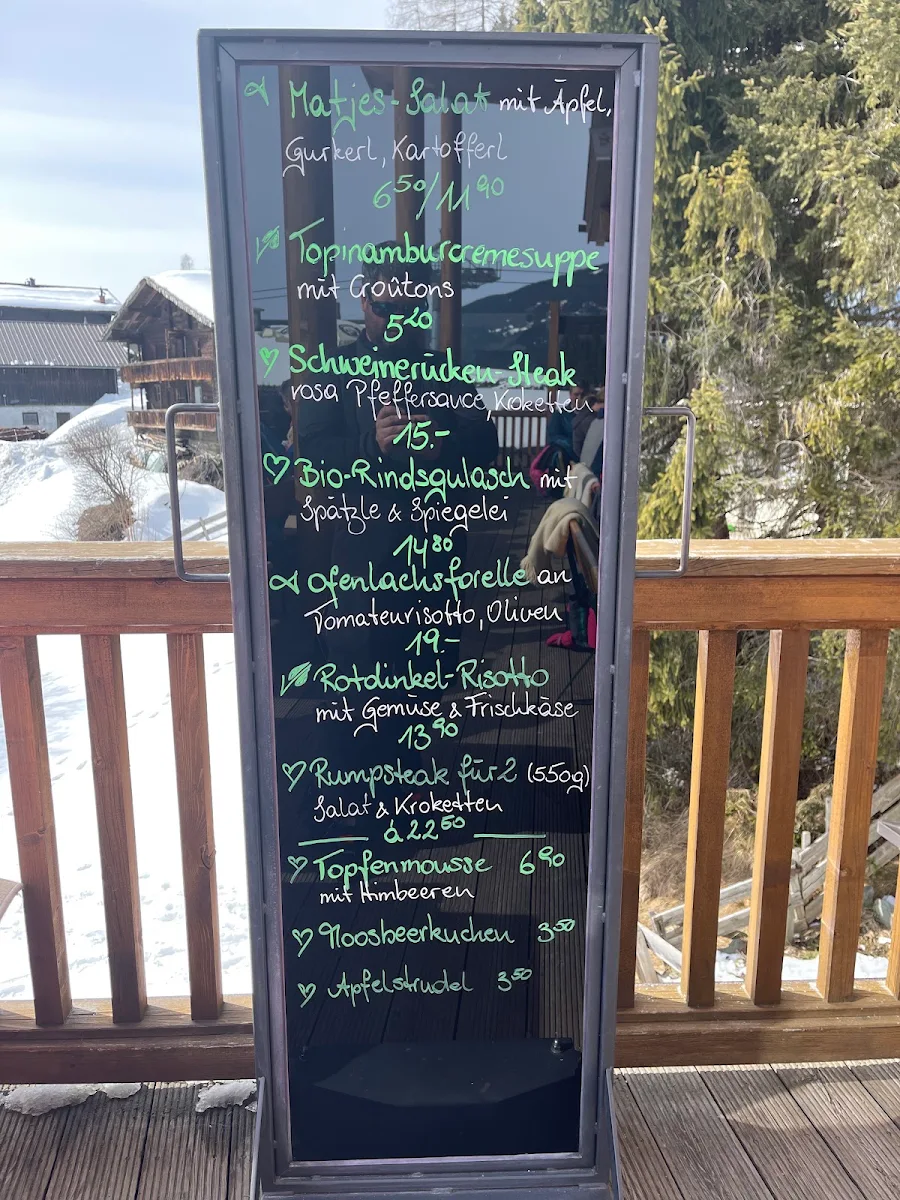 Matjes-Salat mit Äpfel,
Gurkerl, Kartofferl
6 50/11 90
Topinamburcremesuppe
mit Croûtons
5 20
Schweinerücken-Steak
rosa Pfeffersauce, Kroketten
15.-
Bio-Rindsgulasch mit
Spätzle & Spiegelei
14 80
Ofenlachsforelle an
Tomatenrisotto, Oliven
19.-
Rotdinkel-Risotto
mit Gemüse & Frischkäse
13 90
Rumpsteak für 2 (550g)
Salat & Kroketten
á 22 50
Topfenmousse 6 90
mit Himbeeren
Moosbeerkuchen 3 50
Apfelstrudel 3 50